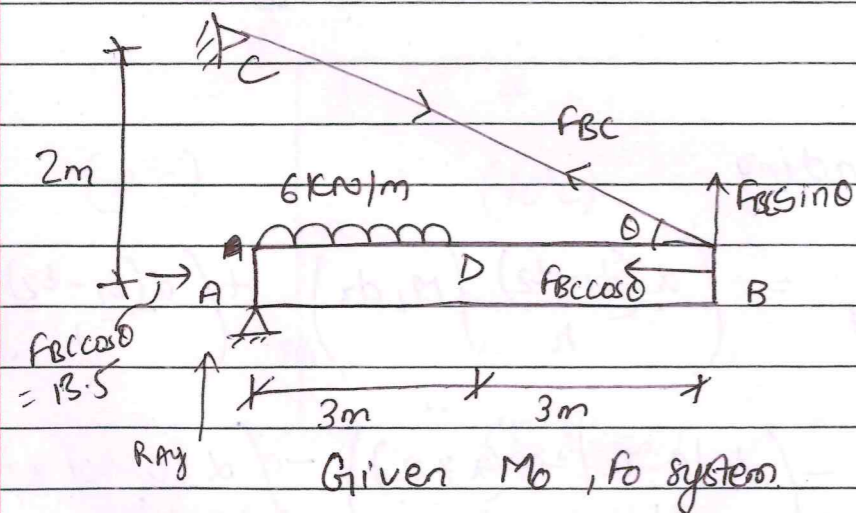 C
FBC
2m
6KN/m
FBCSinθ
θ
D
A
FBCCosθ
B
FBCCosθ
= 13.5
3m
3m
RAy
Given Mo, fo system